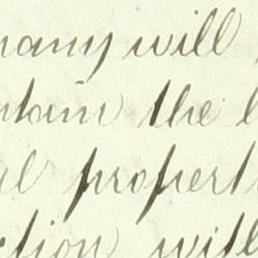 many will
ntain the b
al propert
ction will